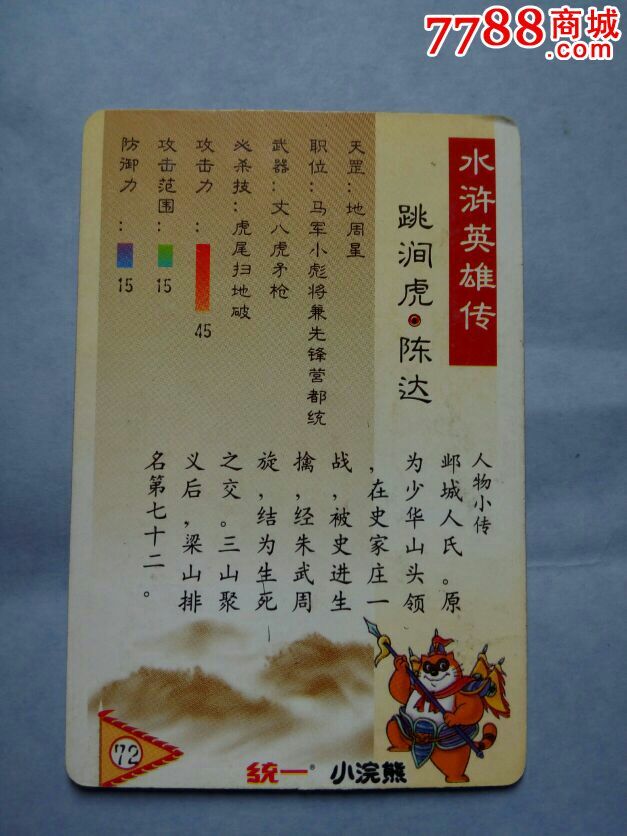 7788商城
.com
水浒英雄传
跳涧虎·陈达
天罡:地周星
职位:马军小彪将兼先锋营都统
武器:丈八虎矛枪
必杀技:虎尾扫地破
攻击力:
45
攻击范围:
15
防御力:
15
人物小传
邺城人氏。原
为少华山头领
,在史家庄一
战,被史进生
擒,经朱武周
旋,结为生死
之交。三山聚
义后,梁山排
名第七十二。
72
统一® 小浣熊